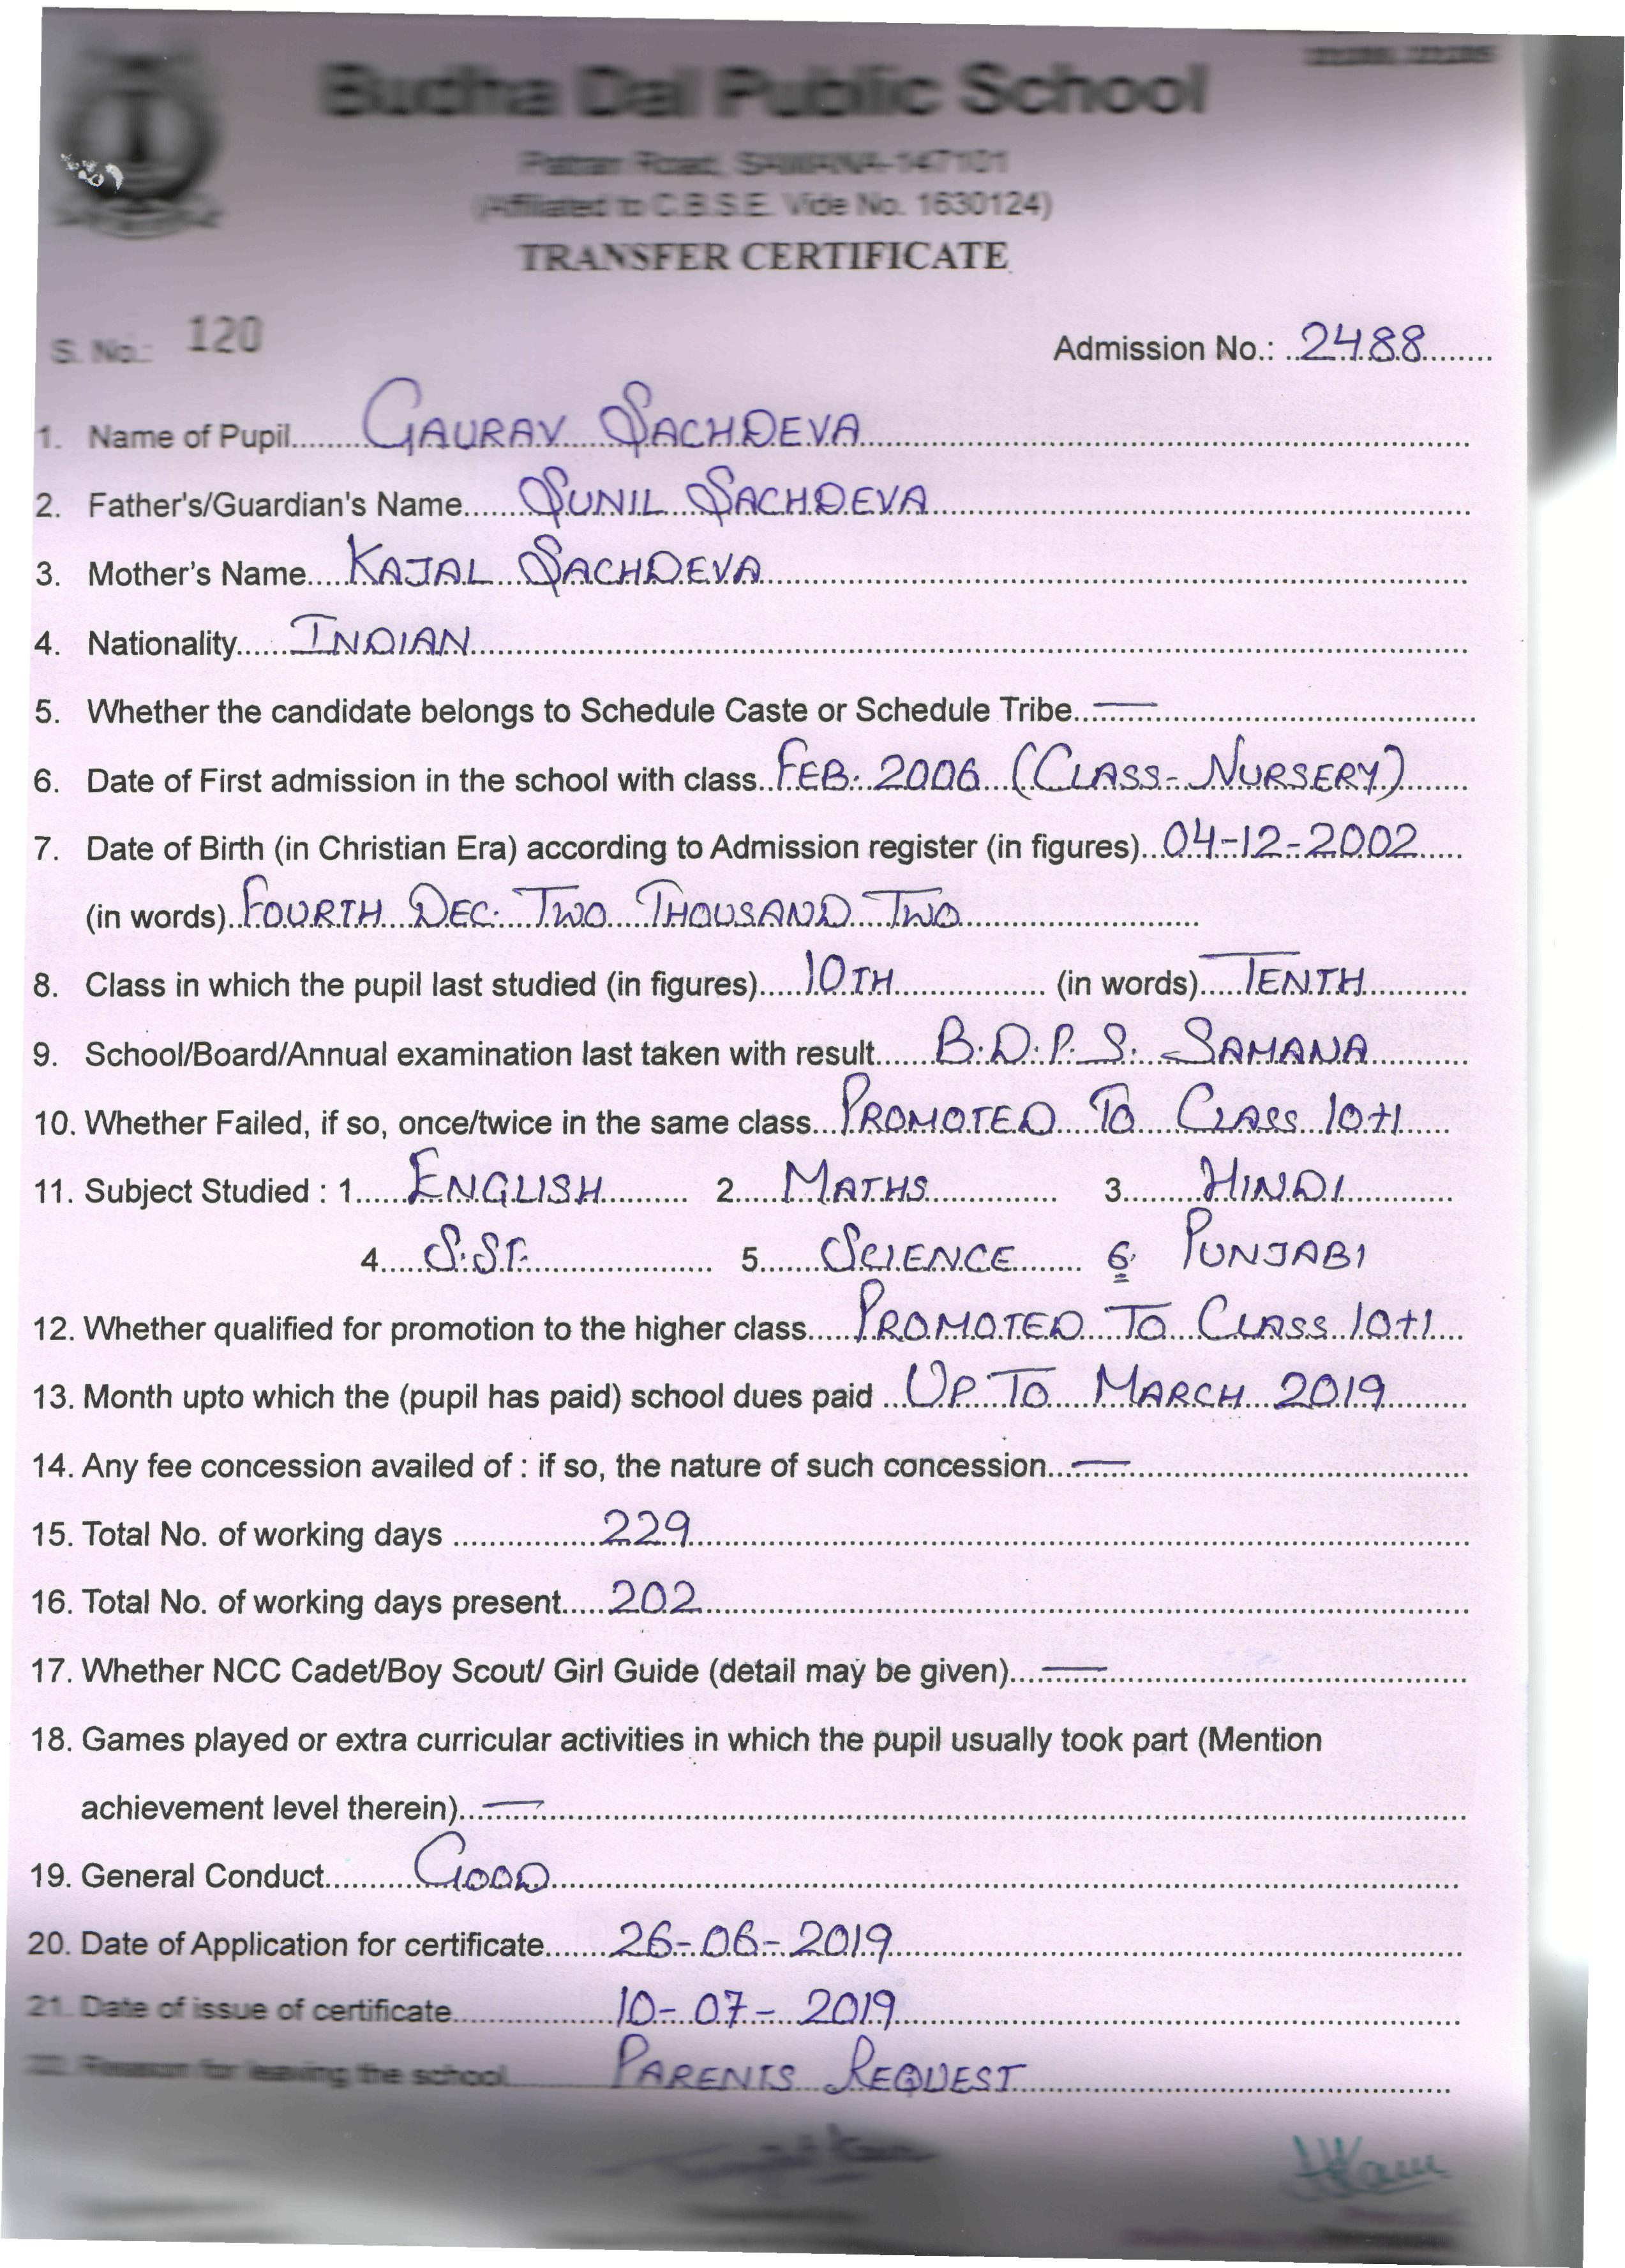 Budha Dal Public School
Patran Road, SAMANA-147101
(Affiliated to C.B.S.E. Vide No. 1630124)
TRANSFER CERTIFICATE
S. No.: 120
Admission No.: 2488
1. Name of Pupil GAURAV SACHDEVA
2. Father's/Guardian's Name SUNIL SACHDEVA
3. Mother's Name KAJAL SACHDEVA
4. Nationality INDIAN
5. Whether the candidate belongs to Schedule Caste or Schedule Tribe —
6. Date of First admission in the school with class FEB. 2006 (CLASS- NURSERY)
7. Date of Birth (in Christian Era) according to Admission register (in figures) 04-12-2002
(in words) FOURTH DEC. TWO THOUSAND TWO
8. Class in which the pupil last studied (in figures) 10TH (in words) TENTH
9. School/Board/Annual examination last taken with result B.D.P.S. SAMANA
10. Whether Failed, if so, once/twice in the same class PROMOTED TO CLASS 10+1
11. Subject Studied : 1 ENGLISH 2 MATHS 3 HINDI
4 S.ST. 5 SCIENCE 6. PUNJABI
12. Whether qualified for promotion to the higher class PROMOTED TO CLASS 10+1
13. Month upto which the (pupil has paid) school dues paid UP TO MARCH 2019
14. Any fee concession availed of : if so, the nature of such concession —
15. Total No. of working days 229
16. Total No. of working days present 202
17. Whether NCC Cadet/Boy Scout/ Girl Guide (detail may be given) —
18. Games played or extra curricular activities in which the pupil usually took part (Mention
achievement level therein) —
19. General Conduct GOOD
20. Date of Application for certificate 26-06-2019
21. Date of issue of certificate 10-07-2019
22. Reason for leaving the school PARENTS REQUEST